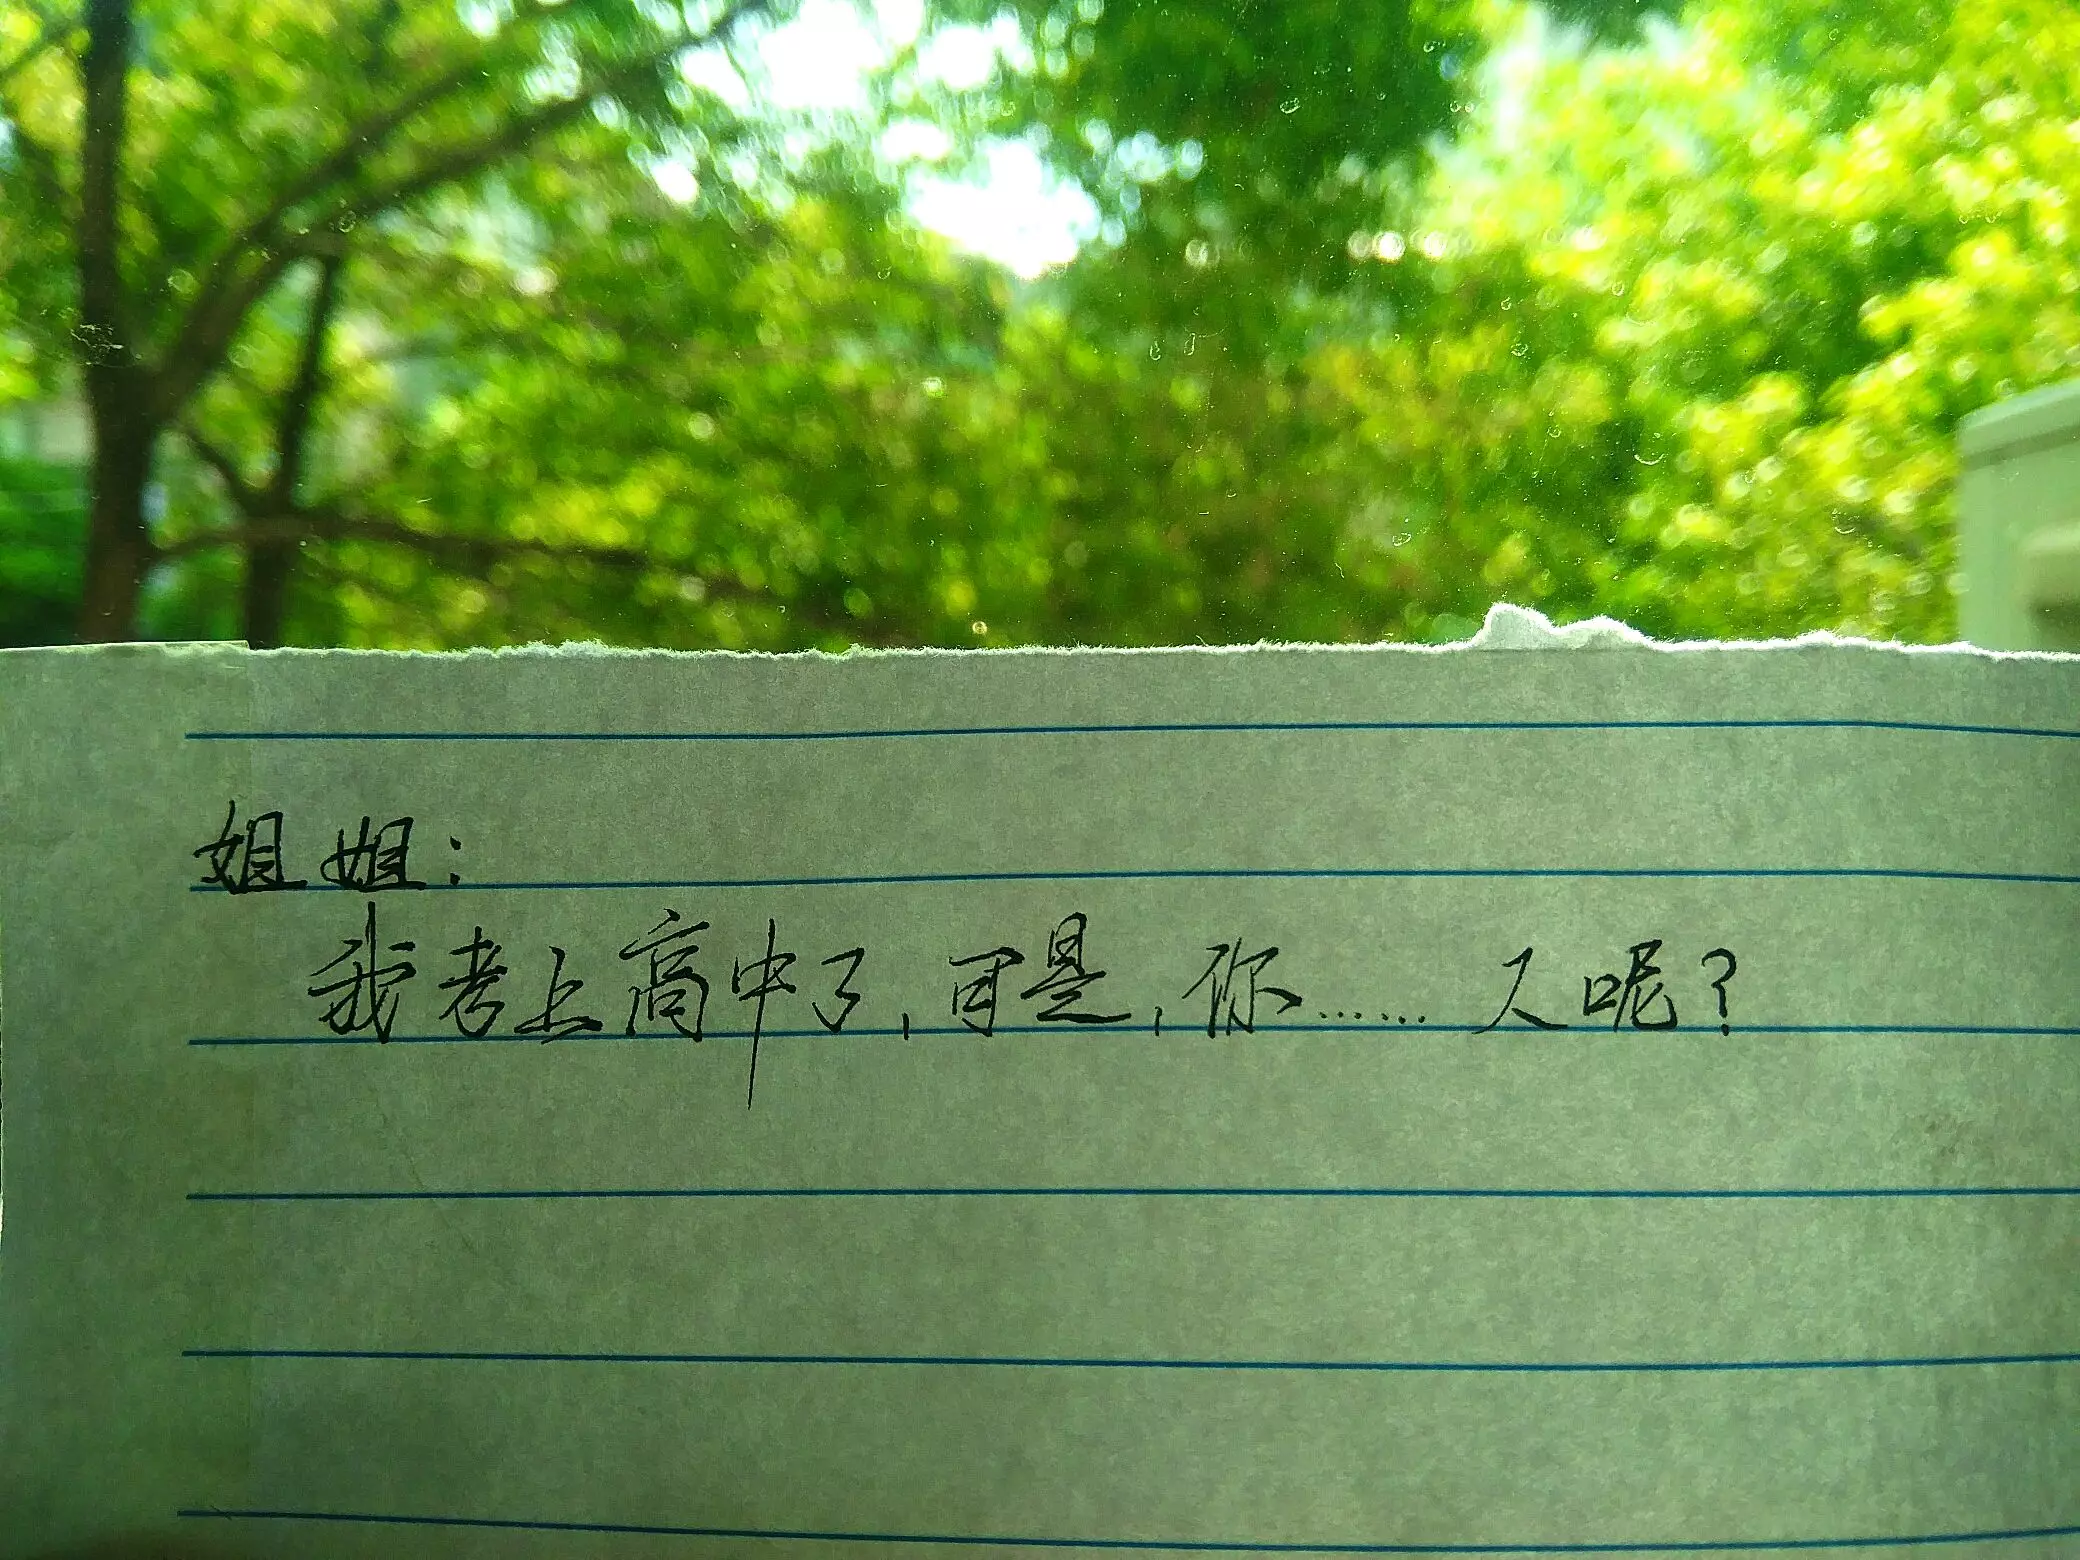 姐姐：
我考上高中了，可是，你……人呢？